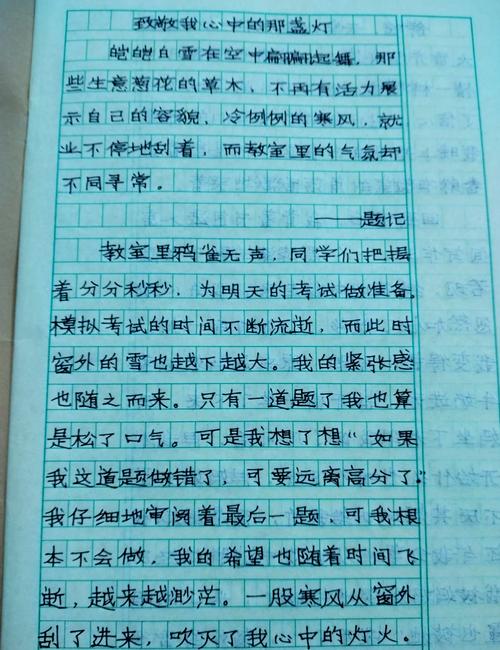 致敬我心中的那盏灯
皑皑白雪在空中翩翩起舞,那
些生意葱茏的草木,不再有活力展
示自己的容貌,冷例例的寒风,就
业不停地刮着,而教室里的气氛却
不同寻常。
——题记
教室里鸦雀无声,同学们把握
着分分秒秒,为明天的考试做准备。
模拟考试的时间不断流逝,而此时
窗外的雪也越下越大。我的紧张感
也随之而来。只有一道题了我也算
是松了口气。可是我想了想“如果
我这道题做错了,可要远离高分了”
我仔细地审阅着最后一题,可我根
本不会做,我的希望也随着时间飞
逝,越来越渺茫。一股寒风从窗外
刮了进来,吹灭了我心中的灯火。